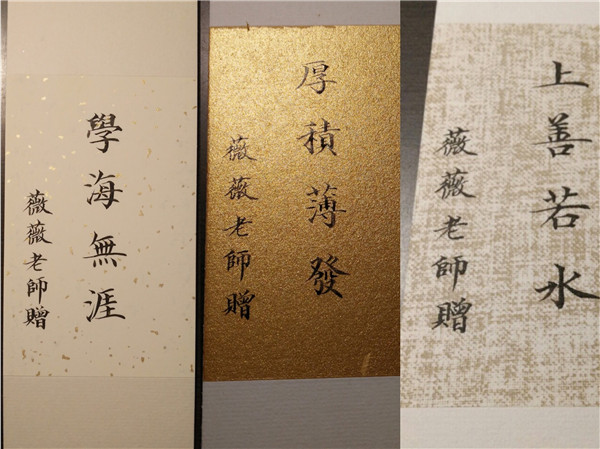 學海無涯
薇薇老師贈
厚積薄發
薇薇老師贈
上善若水
薇薇老師贈